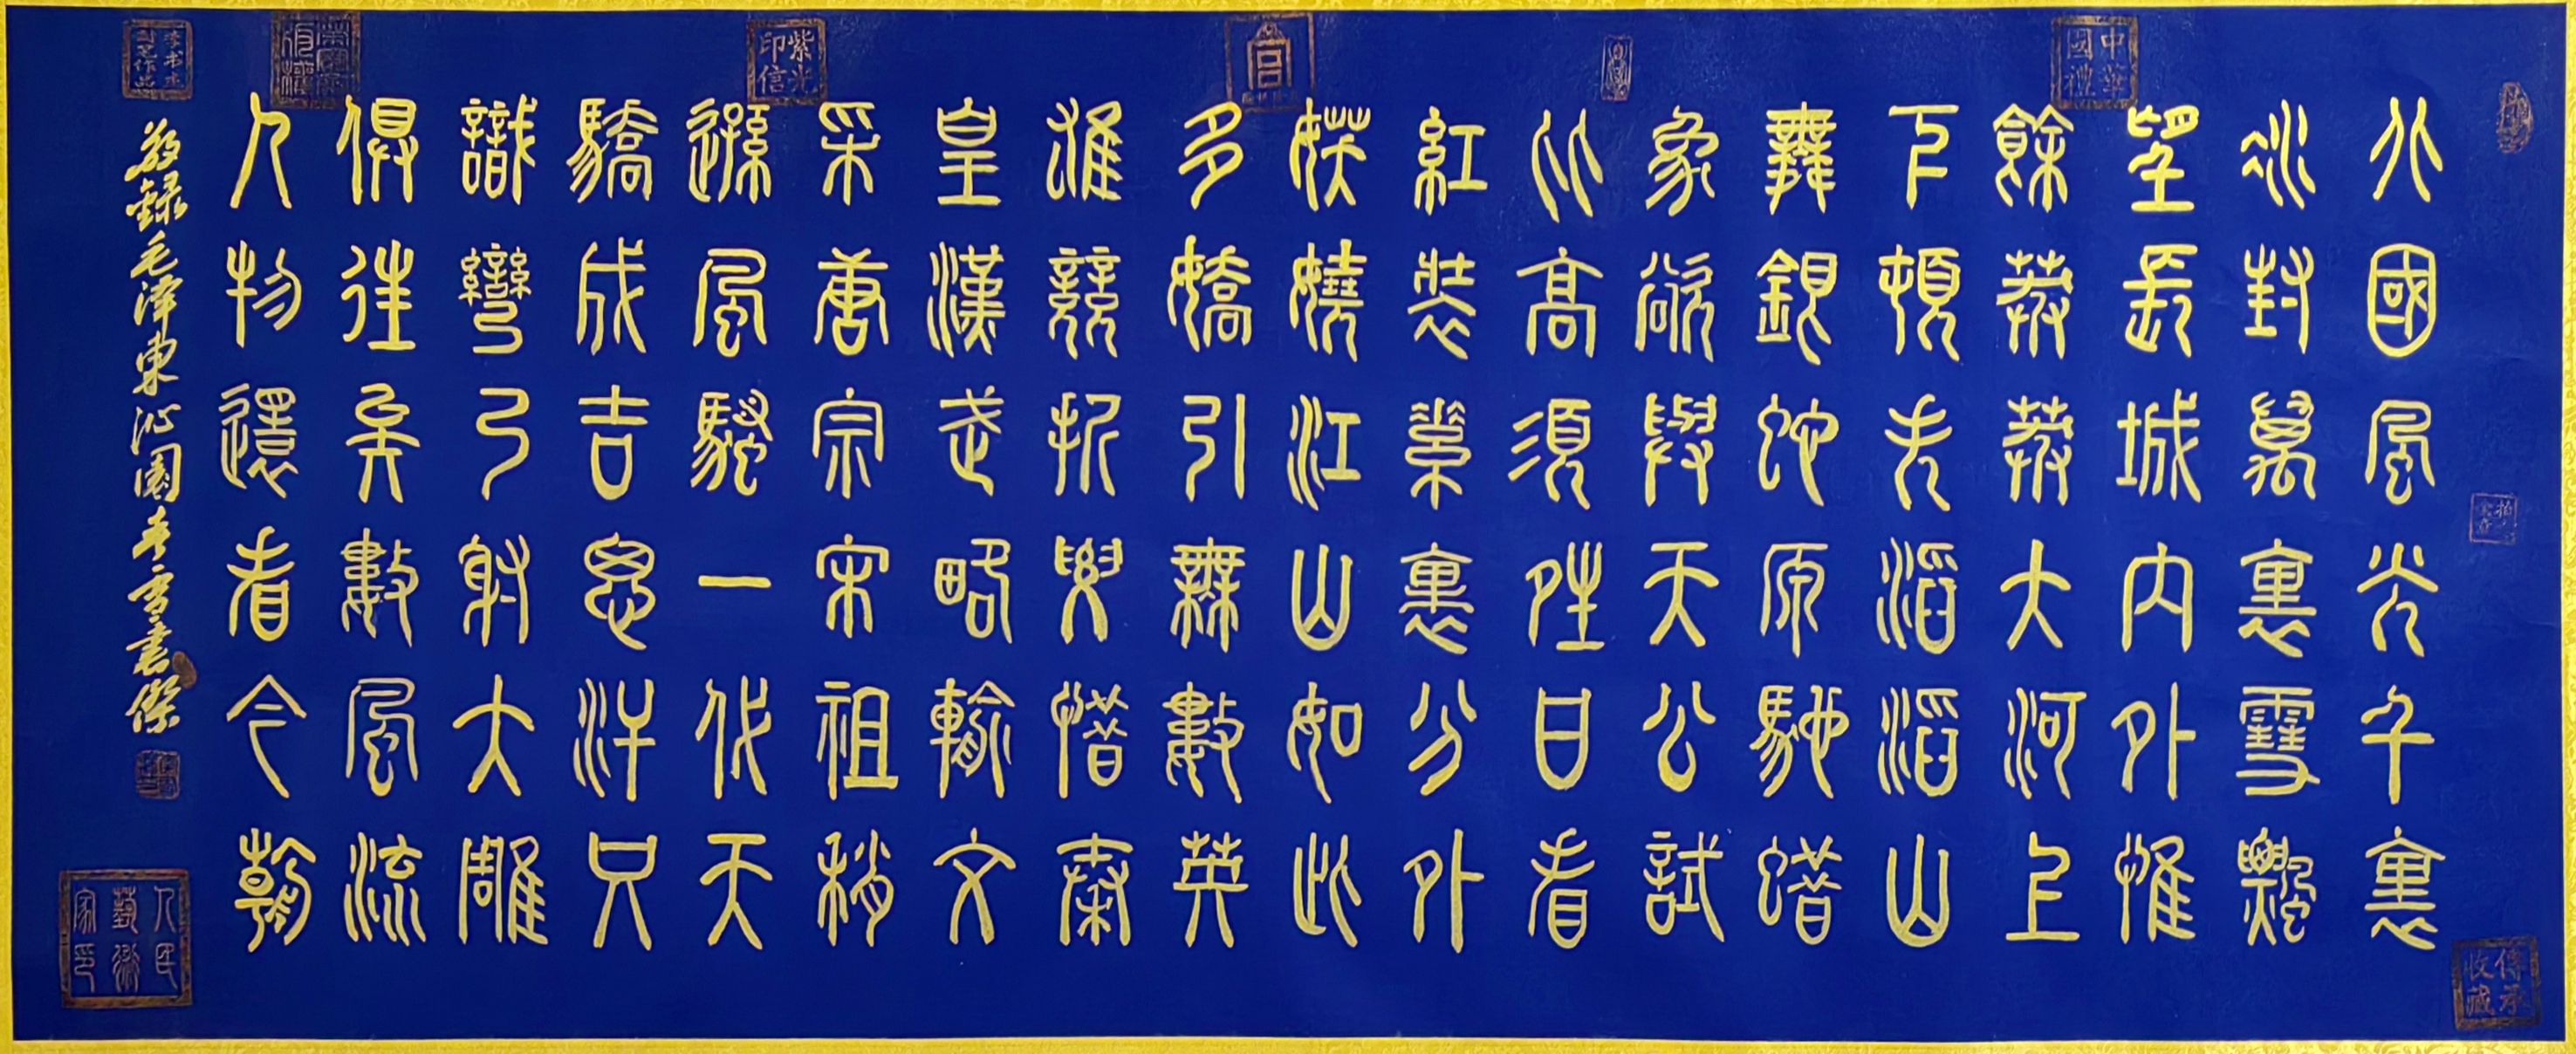 北國風光千裏
冰封萬裏雪飄
望長城内外惟
餘莽莽大河上
下頓失滔滔山
舞銀蛇原馳蜡
象欲與天公試
比高須晴日看
紅裝素裏分外
妖嬈江山如此
多嬌引無數英
雄競折腰惜秦
皇漢武略輸文
采唐宗宋祖稍
遜風騷一代天
驕成吉思汗只
識彎弓射大雕
俱往矣數風流
人物還看今朝
敬録毛澤東沁園春雪書傑
中華國禮
紫光印信
傳承收藏
人民藝術家印